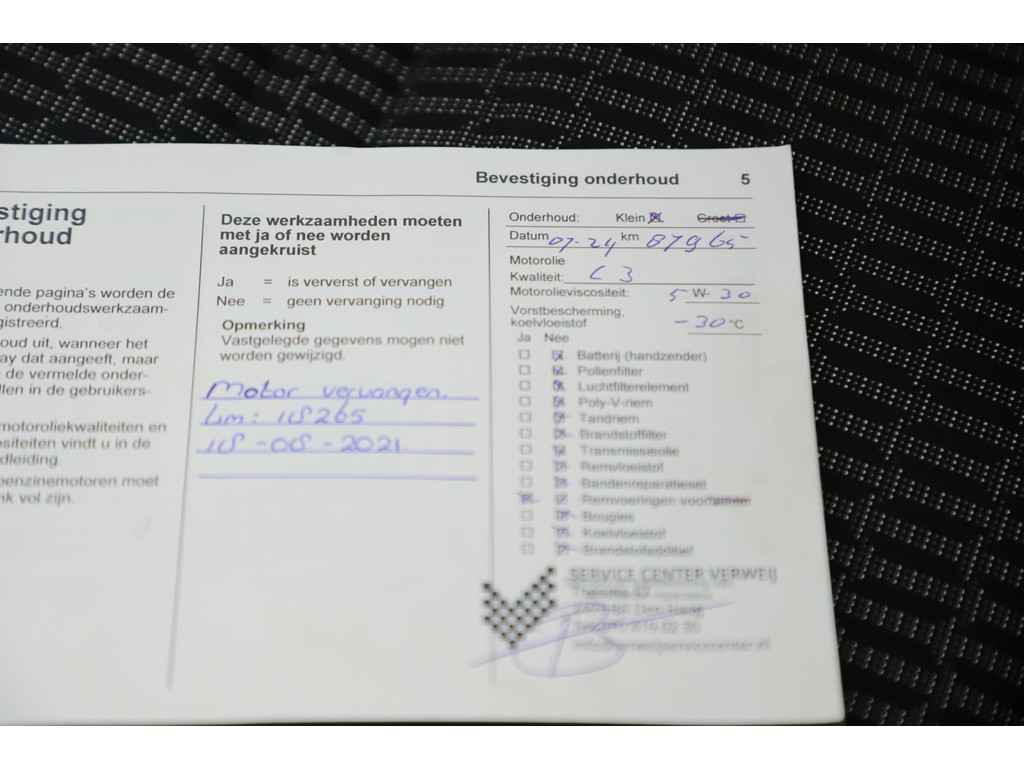 Bevestiging onderhoud 5
stiging
rhoud
ende pagina's worden de
onderhoudswerkzaam-
gistreerd.
oud uit, wanneer het
ay dat aangeeft, maar
de vermelde onder-
llen in de gebruikers-
motoroliekwaliteiten en
ositeiten vindt u in de
dleiding.
benzinemotoren moet
nk vol zijn.
Deze werkzaamheden moeten
met ja of nee worden
aangekruist
Ja = is ververst of vervangen
Nee = geen vervanging nodig
Opmerking
Vastgelegde gegevens mogen niet
worden gewijzigd.
Motor vervangen.
-2021
Onderhoud: Klein Groot
Datum 07-24 km 87965
Motorolie
Kwaliteit: C3
Motorolieviscositeit: 5 W- 30
Vorstbescherming,
koelvloeistof -30 °C
Ja Nee
Batterij (handzender)
Pollenfilter
Luchtfilterelement
Poly-V-riem
Tandriem
Brandstoffilter
Transmissieolie
Remvloeistof
Bandenreparatieset
Remvoeringen voor
Bougies
Koelvloeistof
Brandstofadditief
SERVICE CENTER VERWEIJ